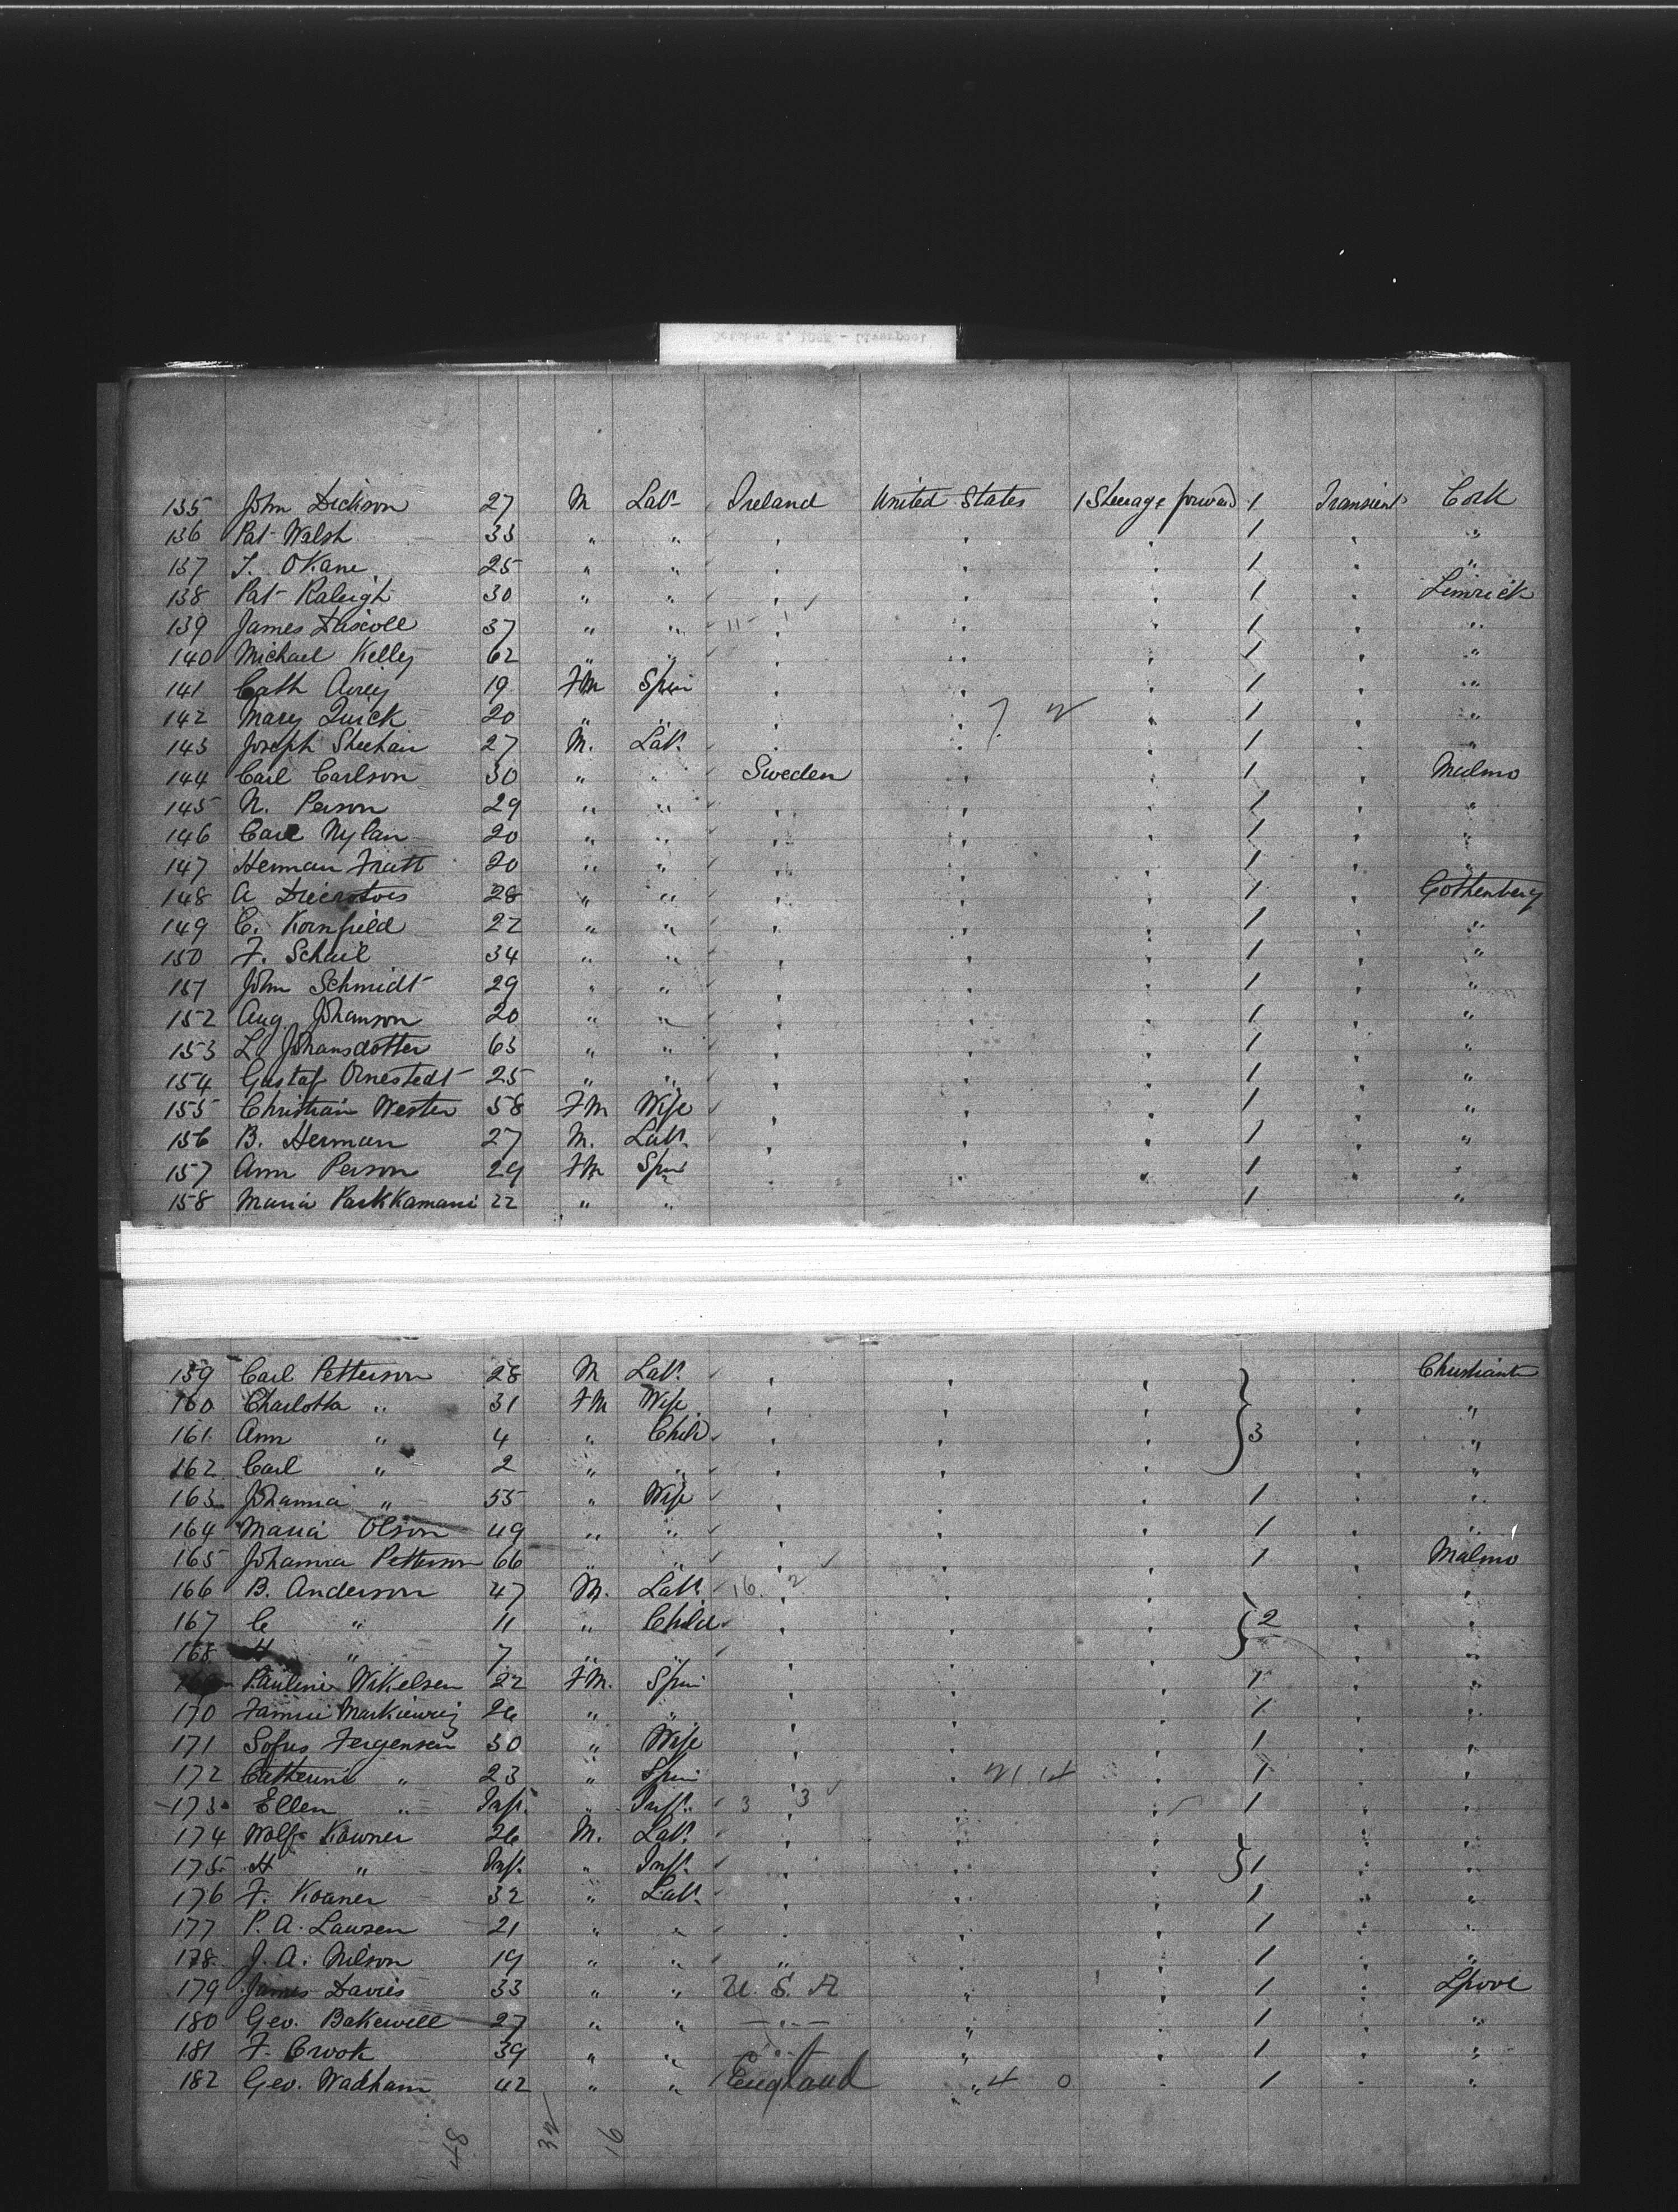 135 John Dickson 27 M Labr Ireland United States 1 Steerage forward 1 Transient Cork
136 Pat Walsh 33 " " " " " 1 " "
137 T. OKane 25 " " " " " 1 " "
138 Pat Raleigh 30 " " " " " 1 " Limrick
139 James Driscoll 37 " " 11 " 1 " " 1 " "
140 Michael Kelley 62 " " " " " 1 " "
141 Cath Airey 19 FM Spin " " " 1 " "
142 Mary Quick 20 " " " " 7 2 " 1 " "
143 Joseph Sheehan 27 M. Labr " " " 1 " "
144 Carl Carlson 30 " " Sweden " " 1 " Malmo
145 N. Person 29 " " " " " 1 " "
146 Carl Nylan 20 " " " " " 1 " "
147 Herman Fratt 20 " " " " " 1 " "
148 A 28 " " " " " 1 " Gothenberg
149 C. Kornfield 22 " " " " " 1 " "
150 F. Schail 34 " " " " " 1 " "
151 John Schmidt 29 " " " " " 1 " "
152 Aug Johanson 20 " " " " " 1 " "
153 L. Johansdotter 63 " " " " " 1 " "
154 Gustaf Ornestedt 25 " " " " " 1 " "
155 Christian Wester 58 FM Wife " " " 1 " "
156 B. Herman 27 M. Labr " " " 1 " "
157 Ann Person 29 FM Spin " " " 1 "
158 Maria Parkkamani 22 " " 1 "
159 Carl Petterson 28 M Labr " " " " Christiania
160 Charlotta " 31 FM Wife " " " " "
161 Ann " 4 " Child " " " 3 " "
162 Carl " 2 " " " " " " "
163 Johanna " 55 " Wife " " " 1 " "
164 Maria Olson 49 " " " " " 1 " "
165 Johanna Petterson 66 " " " " " 1 " Malmo
166 B. Anderson 47 M. Labr 16 2 " " " " "
167 C " 11 " Child " " " 2 " "
168 H " 7 " " " " " " "
169 Pauline Wikelsen 22 FM. Spin " " " 1 " "
170 Fannie Markiewicz 26 " " " " " 1 " "
171 Sofus Jergensen 30 " Wife " " " 1 " "
172 Catherine " 23 " Spin " " 21 14 " 1 " "
173 Ellen " Inft. " Inft. 3 " 3 " " 1 " "
174 Wolf Kowner 26 M. Labr " " " " "
175 H " Inft. " Inft. " " " 1 " "
176 F. Koaner 32 " Labr " " " 1 " "
177 P. A. Lawsen 21 " " " " " 1 " "
178 J. A. Nilson 19 " " " " " 1 " "
179 James Davies 33 " " U. S. A " " 1 " Lpool
180 Geo. Bakewell 27 " " " " " 1 " "
181 F. Crook 39 " " " " " 1 " "
182 Geo. Wadham 42 " " England " 4 0 " 1 " "
48 32 16